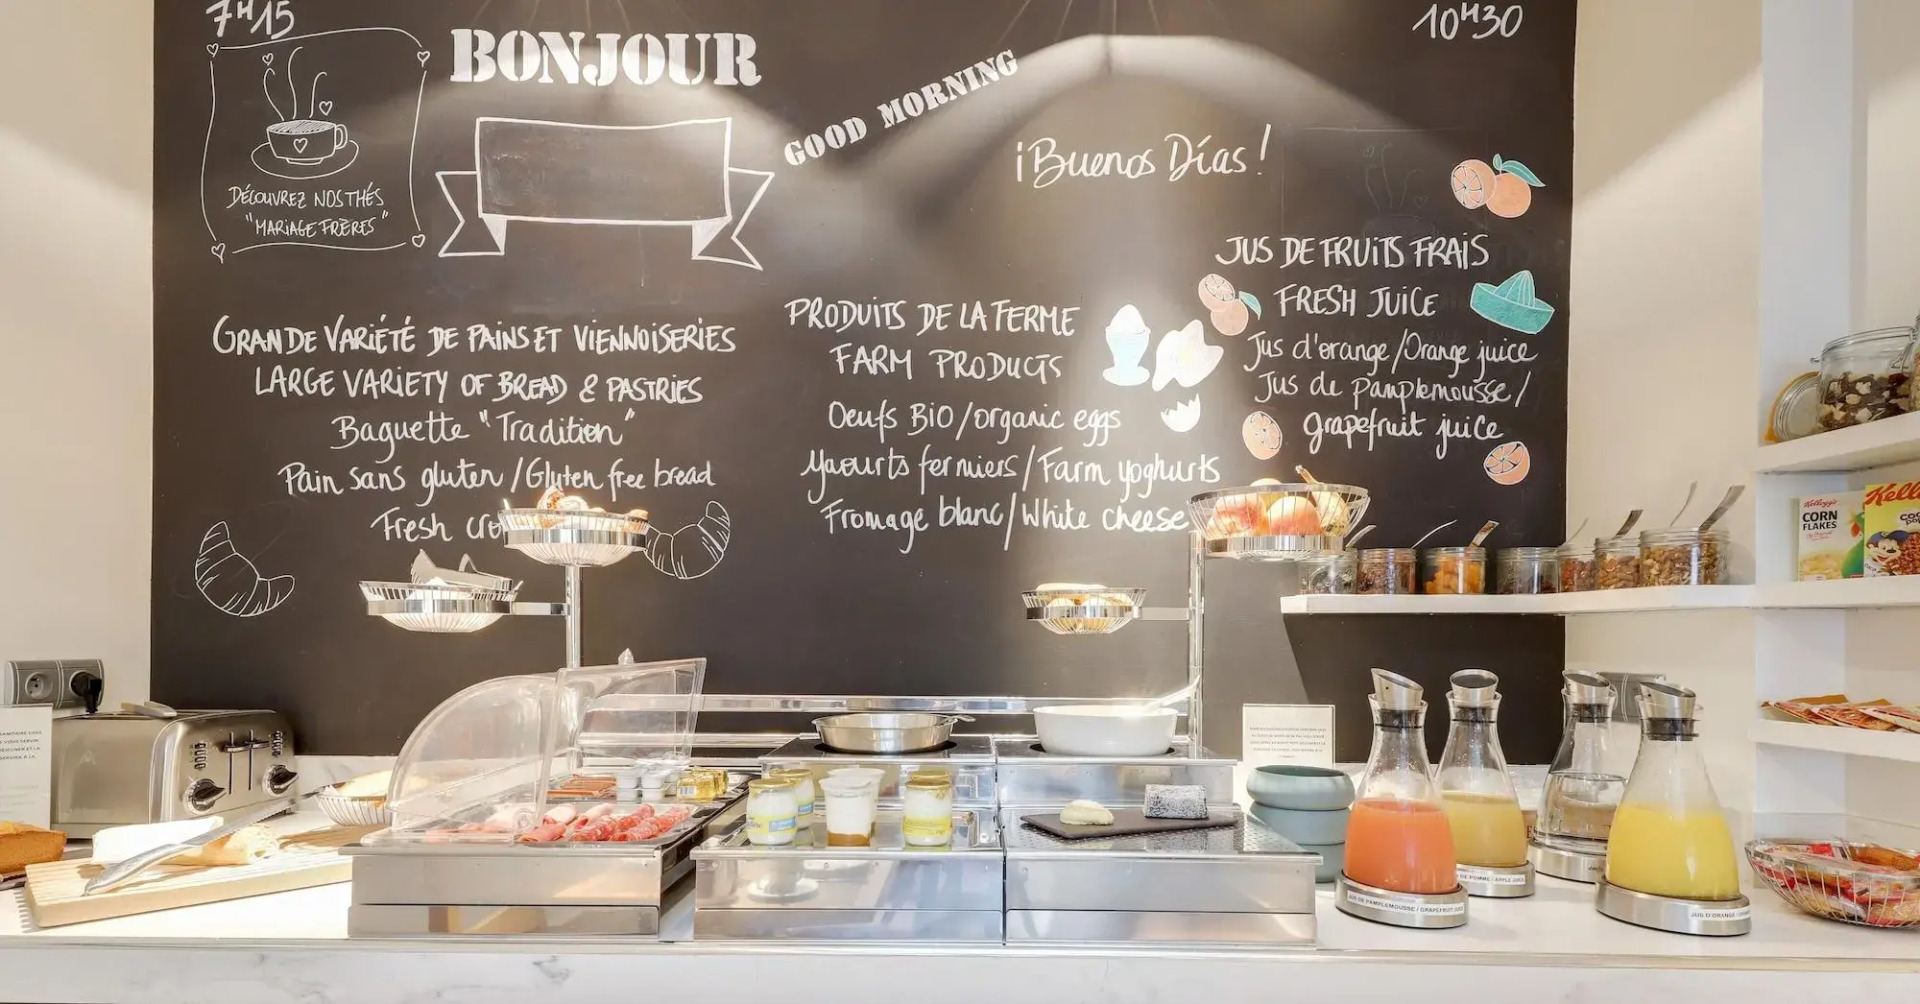 7H15
10H30
BONJOUR
GOOD MORNING
¡Buenos Días!
DÉCOUVREZ NOS THÉS
"MARIAGE FRÈRES"
GRANDE VARIÉTÉ DE PAINS ET VIENNOISERIES
LARGE VARIETY OF BREAD & PASTRIES
Baguette "Tradition"
Pain sans gluten / Gluten free bread
Fresh
PRODUITS DE LA FERME
FARM PRODUCTS
Oeufs BIO / organic eggs
Yaourts fermiers / Farm yoghurts
Fromage blanc / White cheese
JUS DE FRUITS FRAIS
FRESH JUICE
Jus d'orange / Orange juice
Jus de pamplemousse /
grapefruit juice
Kellogg's
CORN
FLAKES
JUS DE PAMPLEMOUSSE / GRAPEFRUIT JUICE
DE POMME / APPLE JUICE
JUS D'ORANGE